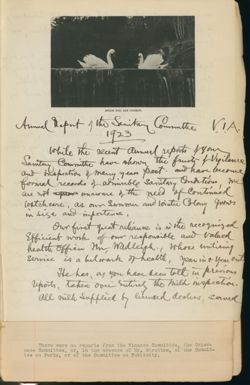 Annual Report of the Sanitary Committee VIA
1923
While the recent annual reports of your
Sanitary Committee have shown the fruits of Vigilance
and inspection of many years past and have become
formal records of admirable Sanitary Conditions we
are not unaware of the need of Continued
watchcare, as our Summer and Winter Colony grows
in size and importance.
Our first great reliance is in the recognized
Efficient work of our responsible and valued
health officer Mr. Wadleigh, whose untiring
Service is a bulwark of health, year in & year out.
He has, as you have been told in previous
reports, taken over entirely the milk inspection.
All milk supplied by licensed dealers, scored
There were no reports from the Finance Committee, the
Committee, or, in the absence of Mr. of the Commit-
tee on Parks, or of the Committee on Publicity.